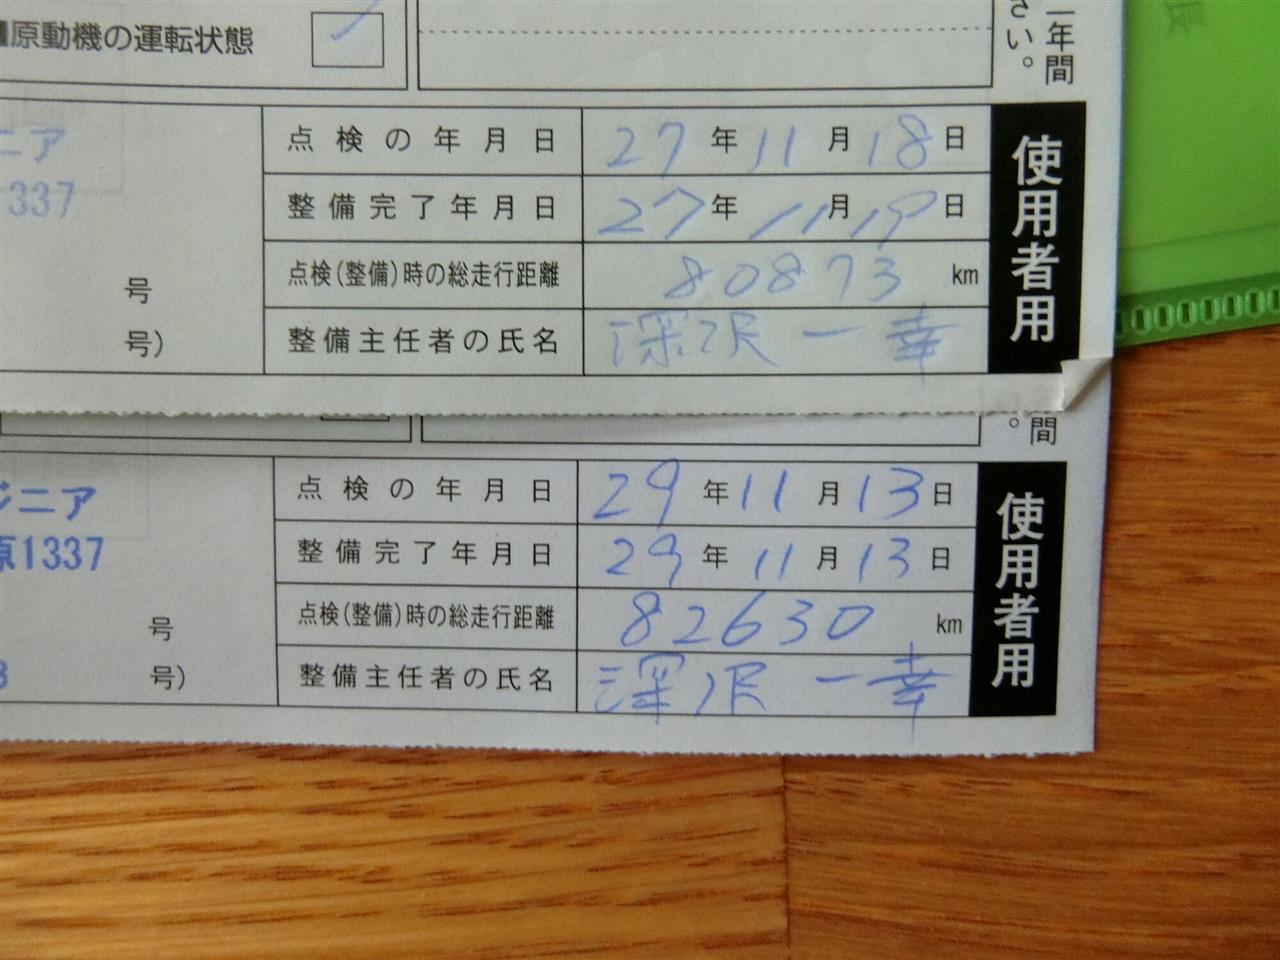 原動機の運転状態
二年間
さい。
ニア
1337
号
号)
点検の年月日 27年11月18日
整備完了年月日 27年11月19日
点検(整備)時の総走行距離 80873 km
整備主任者の氏名 深沢一幸
使用者用
間
。
ジニア
原1337
号
3 号)
点検の年月日 29年11月13日
整備完了年月日 29年11月13日
点検(整備)時の総走行距離 82630 km
整備主任者の氏名 深沢一幸
使用者用